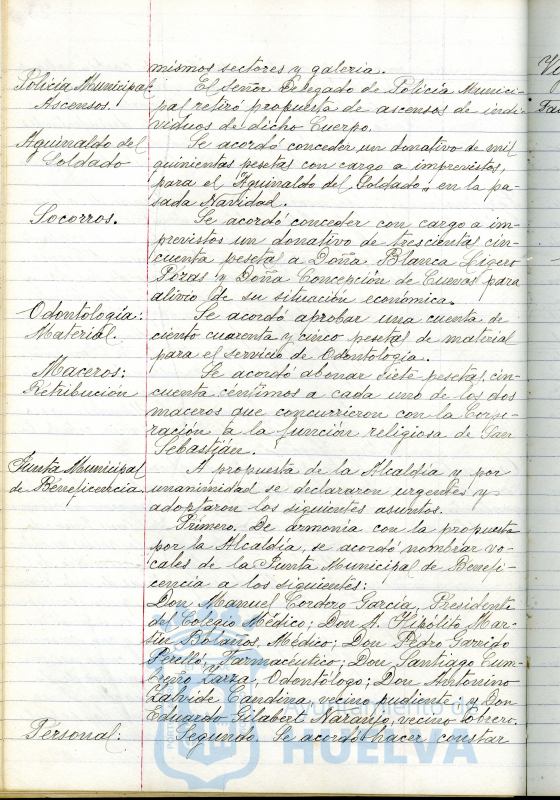 mismos sectores y galeria.
Policía Municipal: El señor Delegado de Policía Munici-
Ascensos. pal retiró propuesta de ascensos de indi-
viduos de dicho Cuerpo.
Aguinaldo del Se acordó conceder un donativo de mil
Soldado quinientas pesetas con cargo a imprevistos,
para el "Aguinaldo del Soldado", en la pa-
sada Navidad.
Socorros. Se acordó conceder con cargo a im-
previstos un donativo de trescientas cin-
cuenta pesetas a Doña Blanca Ligero
Pozas y Doña Concepción de Cuevas para
alivio de su situación económica.
Odontología: Se acordó aprobar una cuenta de
Material. ciento cuarenta y cinco pesetas de material
para el servicio de Odontología.
Maceros: Se acordó abonar siete pesetas cin-
Retribución cuenta céntimos a cada uno de los dos
maceros que concurrieron con la Corpo-
ración a la función religiosa de San
Sebastián.
Junta Municipal A propuesta de la Alcaldía y por
de Beneficencia unanimidad se declararon urgentes y
adoptaron los siguientes asuntos.
Primero. De armonía con la propuesta
por la Alcaldía, se acordó nombrar vo-
cales de la Junta Municipal de Benefi-
cencia a los siguientes:
Don Manuel Cordero García, Presidente
del Colegio Médico; Don A. Hipólito Mar-
tín Bolaños, Médico; Don Pedro Garrido
Perelló, Farmacéutico; Don Santiago
Odontólogo; Don Antonino
Zalvide Candina, vecino pudiente; y Don
Eduardo Gilabert Naranjo, vecino obrero.
Personal: Segundo. Se acordó hacer constar
Ayuntamiento de
HUELVA